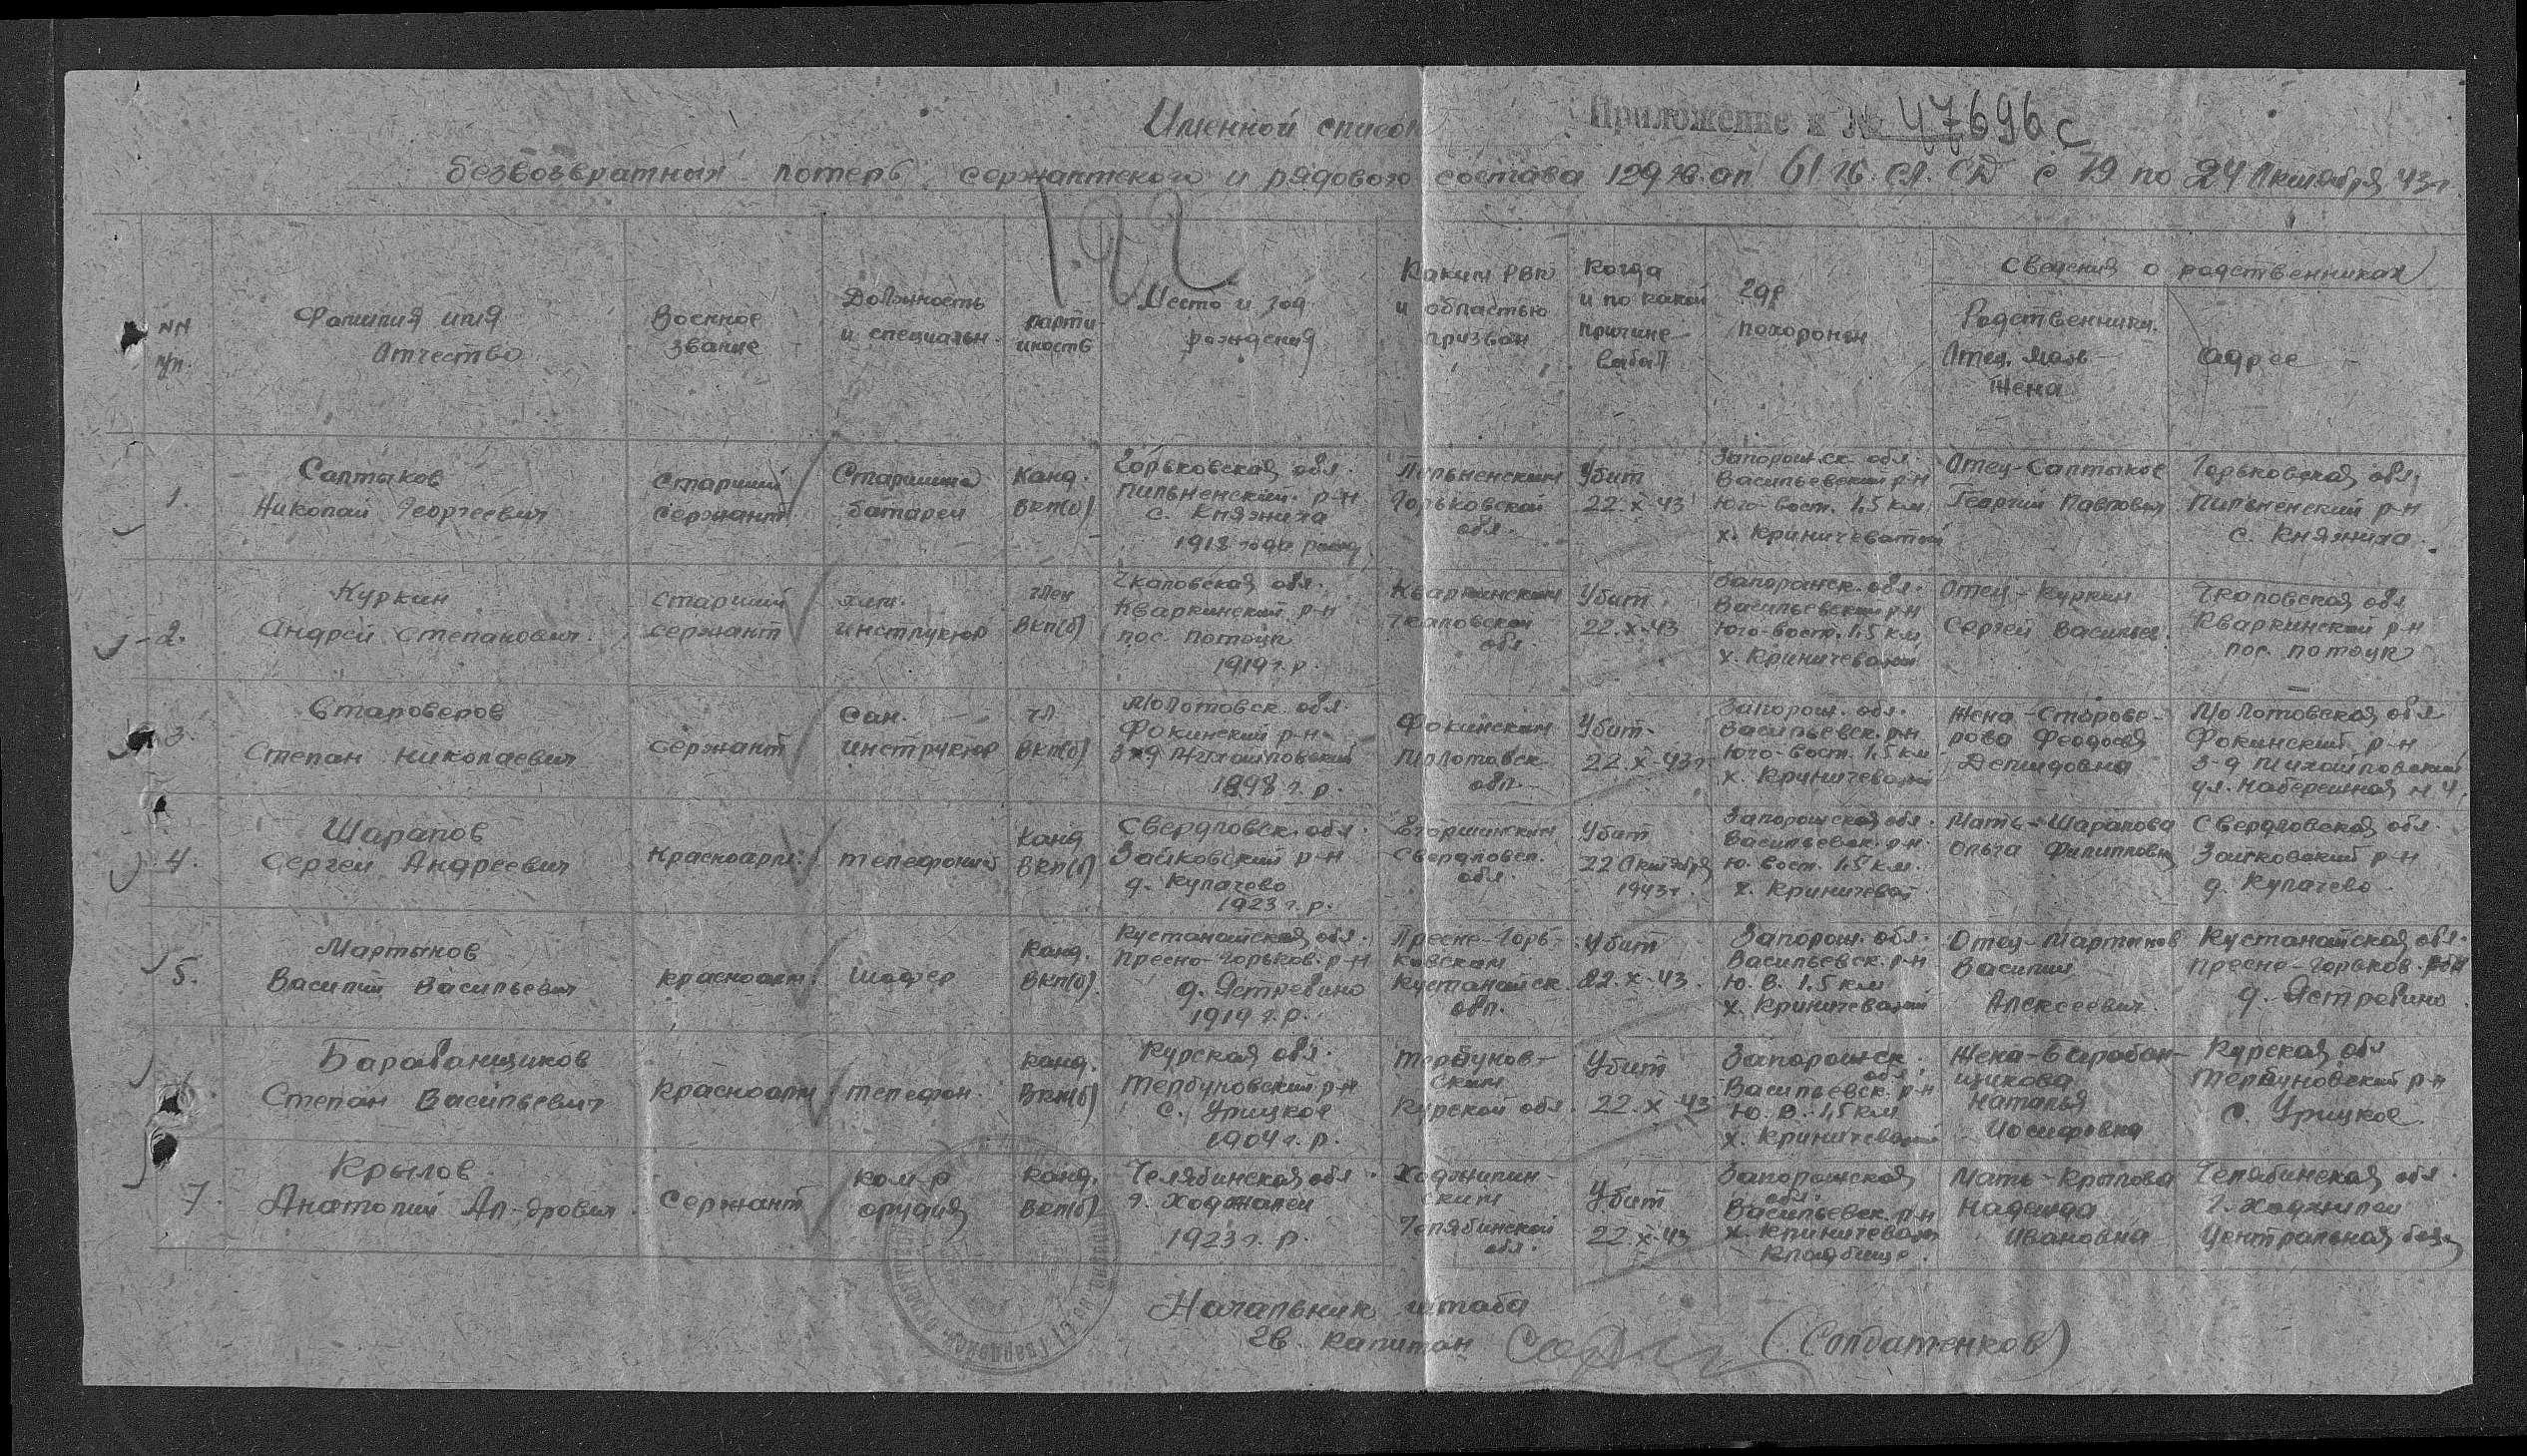 Приложение к № 47696с
Именной список
безвозвратных потерь сержантского и рядового состава 129 гв. ап 61 гв. сл. СД с 19 по 24 Октября 43 г.
122
NN п/п.
Фамилия имя
Отчество
Военное
звание
Должность
и специальн.
парти-
йность
Место и год
рождения
Каким РВК
и областью
призван
Когда
и по какой
причине
выбыл
где
похоронен
Сведения о родственниках
Родственники.
Отец, мать
Жена
Адрес
1.
Салтыков
Николай Георгиевич
Старший
сержант
Старшина
батареи
Канд.
ВКП(б)
Горьковская обл.
Пильненский р-н
с. Княжиха
1918 года рожд.
Пильненским
Горьковской
обл.
Убит
22.X-43
Запорожск. обл.
Васильевский р-н
Юго-вост. 1,5 км
х. Криничеватый
Отец-Салтыков
Георгий Павлович
Горьковская обл.
Пильненский р-н
с. Княжиха.
2.
Куркин
Андрей Степанович.
Старший
сержант
хим.
инструктор
член
ВКП(б)
Чкаловская обл.
Кваркинский р-н
пос. Потоцк
1919 г. р.
Кваркинским
Чкаловской
обл.
Убит
22.X-43
Запорожск. обл.
Васильевский р-н
Юго-вост. 1,5 км
х. Криничеватый
Отец-Куркин
Сергей Васильев.
Чкаловская обл
Кваркинский р-н
пос. потоцк
3.
Староверов
Степан Николаевич
сержант
Сан.
инструктор
чл
ВКП(б)
Молотовск. обл.
Фокинский р-н
з-д Михайловский
1898 г. р.
Фокинским
Молотовск.
обл.
Убит
22.X-43 г.
Запорож. обл.
Васильевск. р-н
Юго-вост. 1,5 км
х. Криничеватый
Жена-Старове-
рова Феодосия
Демидовна
Молотовская обл
Фокинский р-н
з-д Михайловский
ул. Набережная N 4.
4.
Шарапов
Сергей Андреевич
Красноарм.
телефонист
Канд
ВКП(б)
Свердловск. обл.
Зайковский р-н
д. Кулачево
1923 г. р.
Егоршинским
Свердловск.
обл.
Убит
22 Октября
1943 г.
Запорожская обл.
Васильевск. р-н
Ю. вост. 1,5 км.
х. Криничеват
Мать-Шарапова
Ольга Филипповна
Свердловская обл.
Зайковский р-н
д. Кулачево
5.
Мартынов
Василий Васильевич
красноарм.
шофер
Канд.
ВКП(б).
Кустанайская обл.
Пресно-Горьков. р-н
д. Ястребино
1919 г. р.
Пресно-Горь-
ковским
Кустанайск.
обл.
Убит
22.X-43.
Запорож. обл.
Васильевск. р-н
Ю. В. 1,5 км
х. Криничеватый
Отец-Мартынов
Василий
Алексеевич.
Кустанайская обл.
Пресно-Горьков. р-н
д. Ястребино.
Барабанщиков
Степан Васильевич
красноарм
телефон.
канд.
ВКП(б)
Курская обл.
Тербуновский р-н
с. Урицкое
1904 г. р.
Тербунов-
ским
Курской обл.
Убит
22.X 43
Запорожск.
обл.
Васильевск. р-н
Ю. В. 1,5 км
х. Криничеватый
Жена-Барабан-
щикова
Наталья
Иосифовна
Курская обл
Тербуновский р-н
с. Урицкое.
7.
Крылов
Анатолий Ал-дрович.
Сержант
ком-р
орудия
канд.
ВКП(б)
Челябинская обл.
г. Ходжалеи
1923 г. р.
Ходжилин-
ским
Челябинской
обл.
Убит
22.X-43
Запорожская
обл.
Васильевск. р-н
х. Криничеват
Кладбище.
Мать-Крылова
Надежда
Ивановна
Челябинская обл.
г. Ходжилеи
Центральная база
Начальник штаба
гв. капитан (Солдатенков)